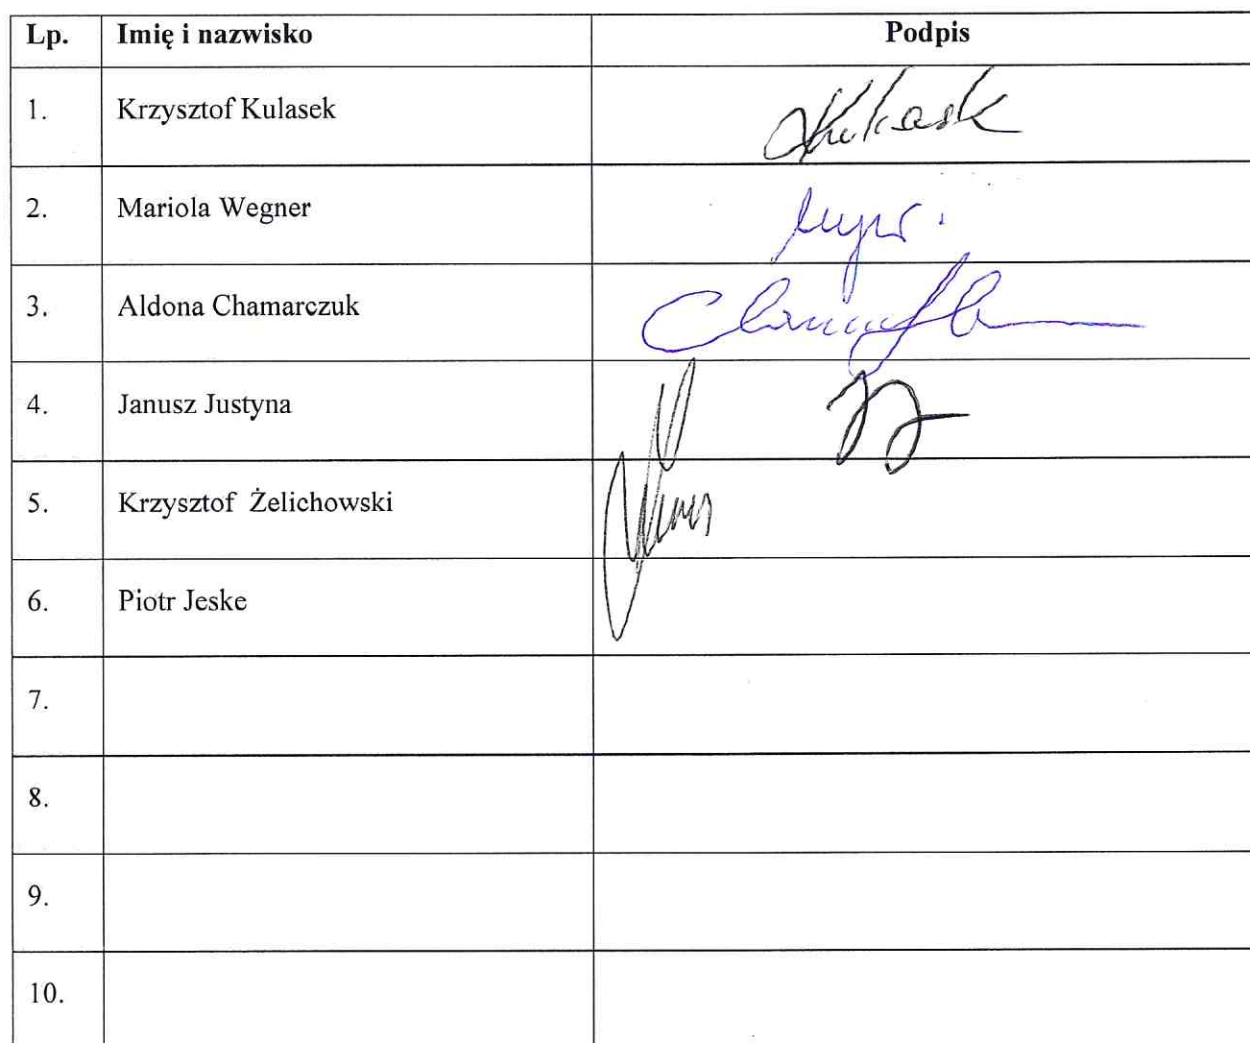 Lp. Imię i nazwisko Podpis
1. Krzysztof Kulasek
2. Mariola Wegner
3. Aldona Chamarczuk
4. Janusz Justyna
5. Krzysztof Żelichowski
6. Piotr Jeske
7.
8.
9.
10.